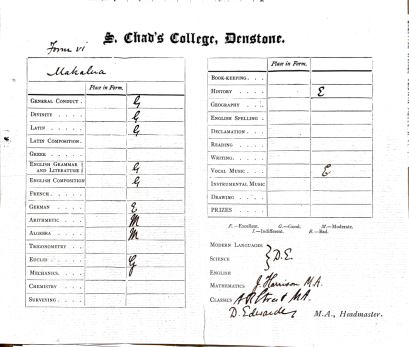 S. Chad's College, Denstone.
Form vi
Makalua
Place in Form.
GENERAL CONDUCT . G
DIVINITY . . . . G
LATIN . . . . . G
LATIN COMPOSITION.
GREEK . . . .
ENGLISH GRAMMAR
AND LITERATURE } G
ENGLISH COMPOSITION G
FRENCH. . . . .
GERMAN . . . . E
ARITHMETIC . . . M
ALGEBRA . . . . M
TRIGONOMETRY . .
EUCLID . . . . G
MECHANICS. . . .
CHEMISTRY . . .
SURVEYING. . . .
Place in Form.
BOOK-KEEPING. . . .
HISTORY . . . . . E
GEOGRAPHY . . . .
ENGLISH SPELLING . .
DECLAMATION. . . .
READING . . . . .
WRITING. . . . .
VOCAL MUSIC . . . E
INSTRUMENTAL MUSIC
DRAWING . . . . .
PRIZES
E.—Excellent. G.—Good. M.—Moderate.
I.—Indifferent. B.—Bad.
MODERN LANGUAGES
SCIENCE } D.E.
ENGLISH
MATHEMATICS J. Harrison M.A.
CLASSICS A R Street M.A.
D. Edwardes M.A., Headmaster.